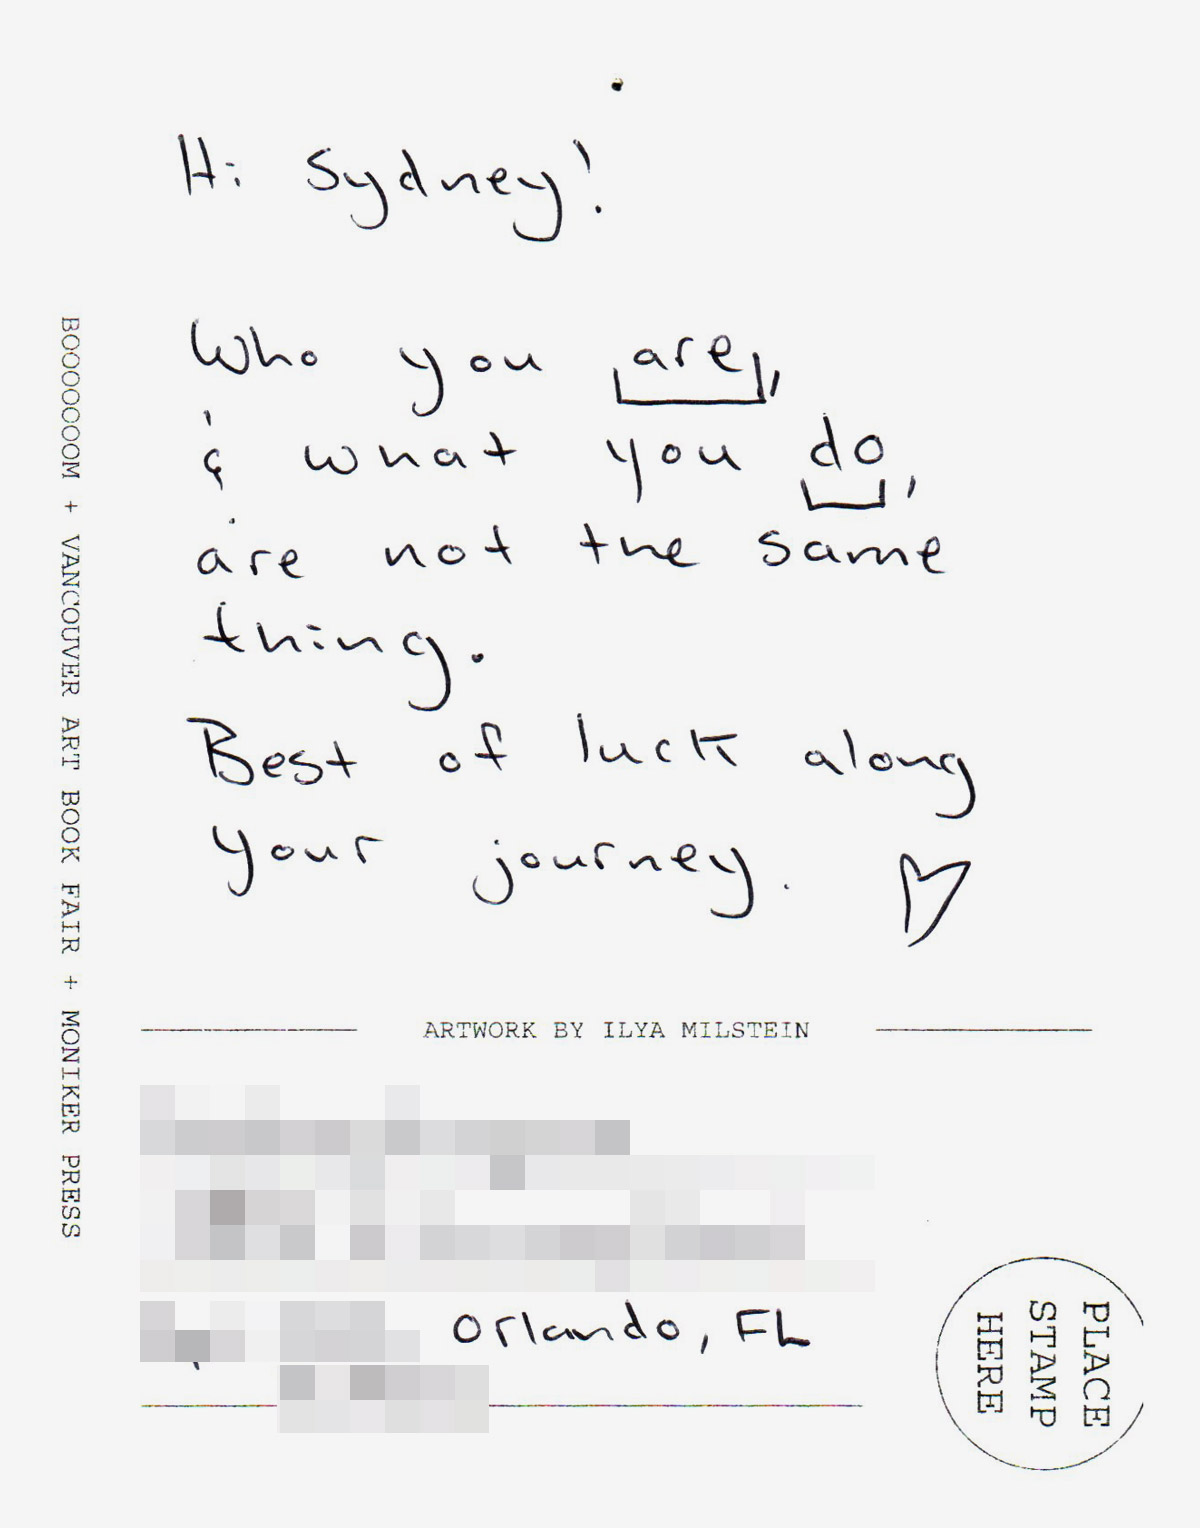 Hi Sydney!
Who you are,
& what you do,
are not the same
thing.
Best of luck along
your journey. ♡
BOOOOOOOM + VANCOUVER ART BOOK FAIR + MONIKER PRESS
ARTWORK BY ILYA MILSTEIN
Orlando, FL
PLACE
STAMP
HERE